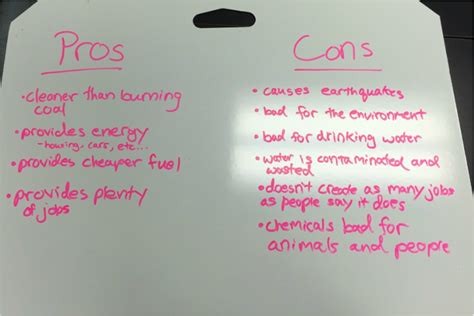 Pros
• cleaner than burning
coal
• provides energy
- housing, cars, etc...
• provides cheaper fuel
• provides plenty
of jobs
Cons
• causes earthquakes
• bad for the environment
• bad for drinking water
• water is contaminated and
wasted
• doesn't create as many jobs
as people say it does
• chemicals bad for
animals and people